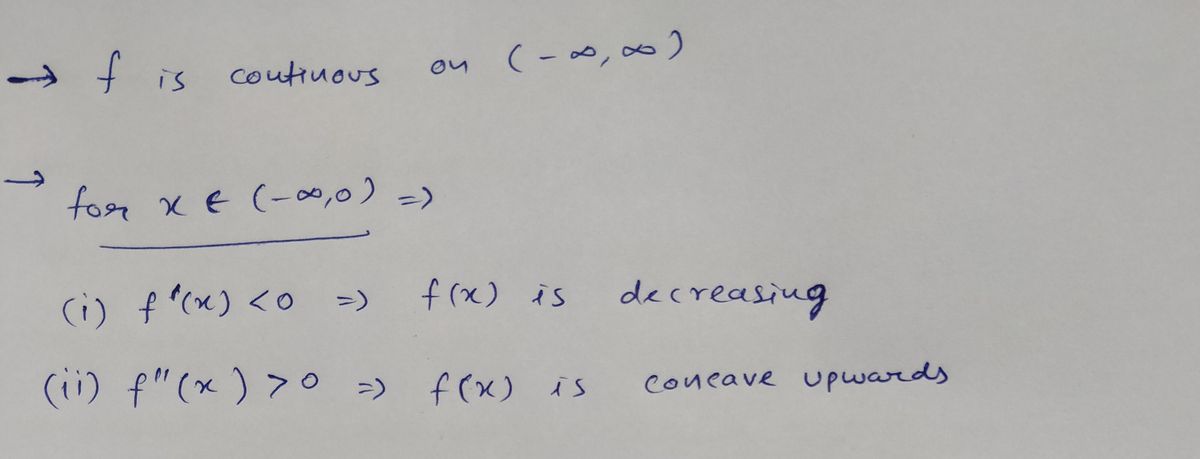 → f is continous on (-∞,∞)
→ for x ∈ (-∞,0) =>
(i) f'(x) <0 => f(x) is decreasing
(ii) f"(x) >0 => f(x) is concave upwards